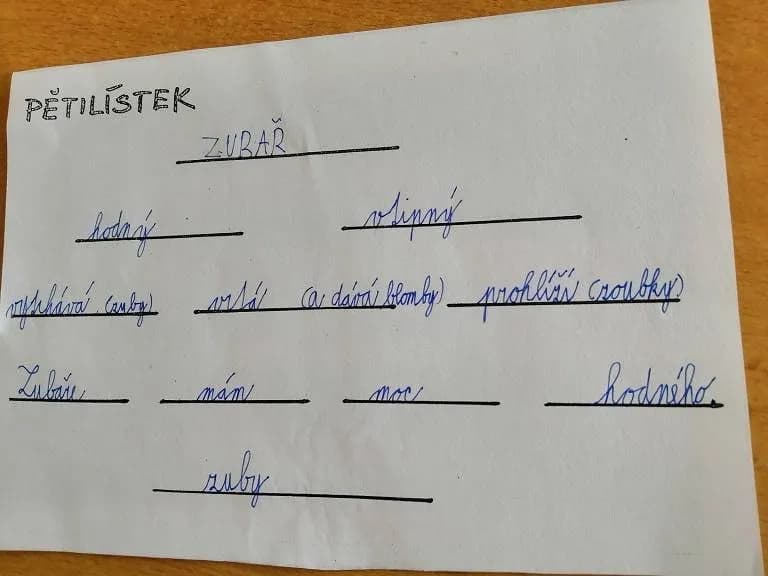 PĚTILÍSTEK
ZUBAŘ
hodný vtipný
vytrhává (zuby) vrtá (a dává blomby) prohlíží (zoubky)
Zubaře mám moc hodného.
zuby